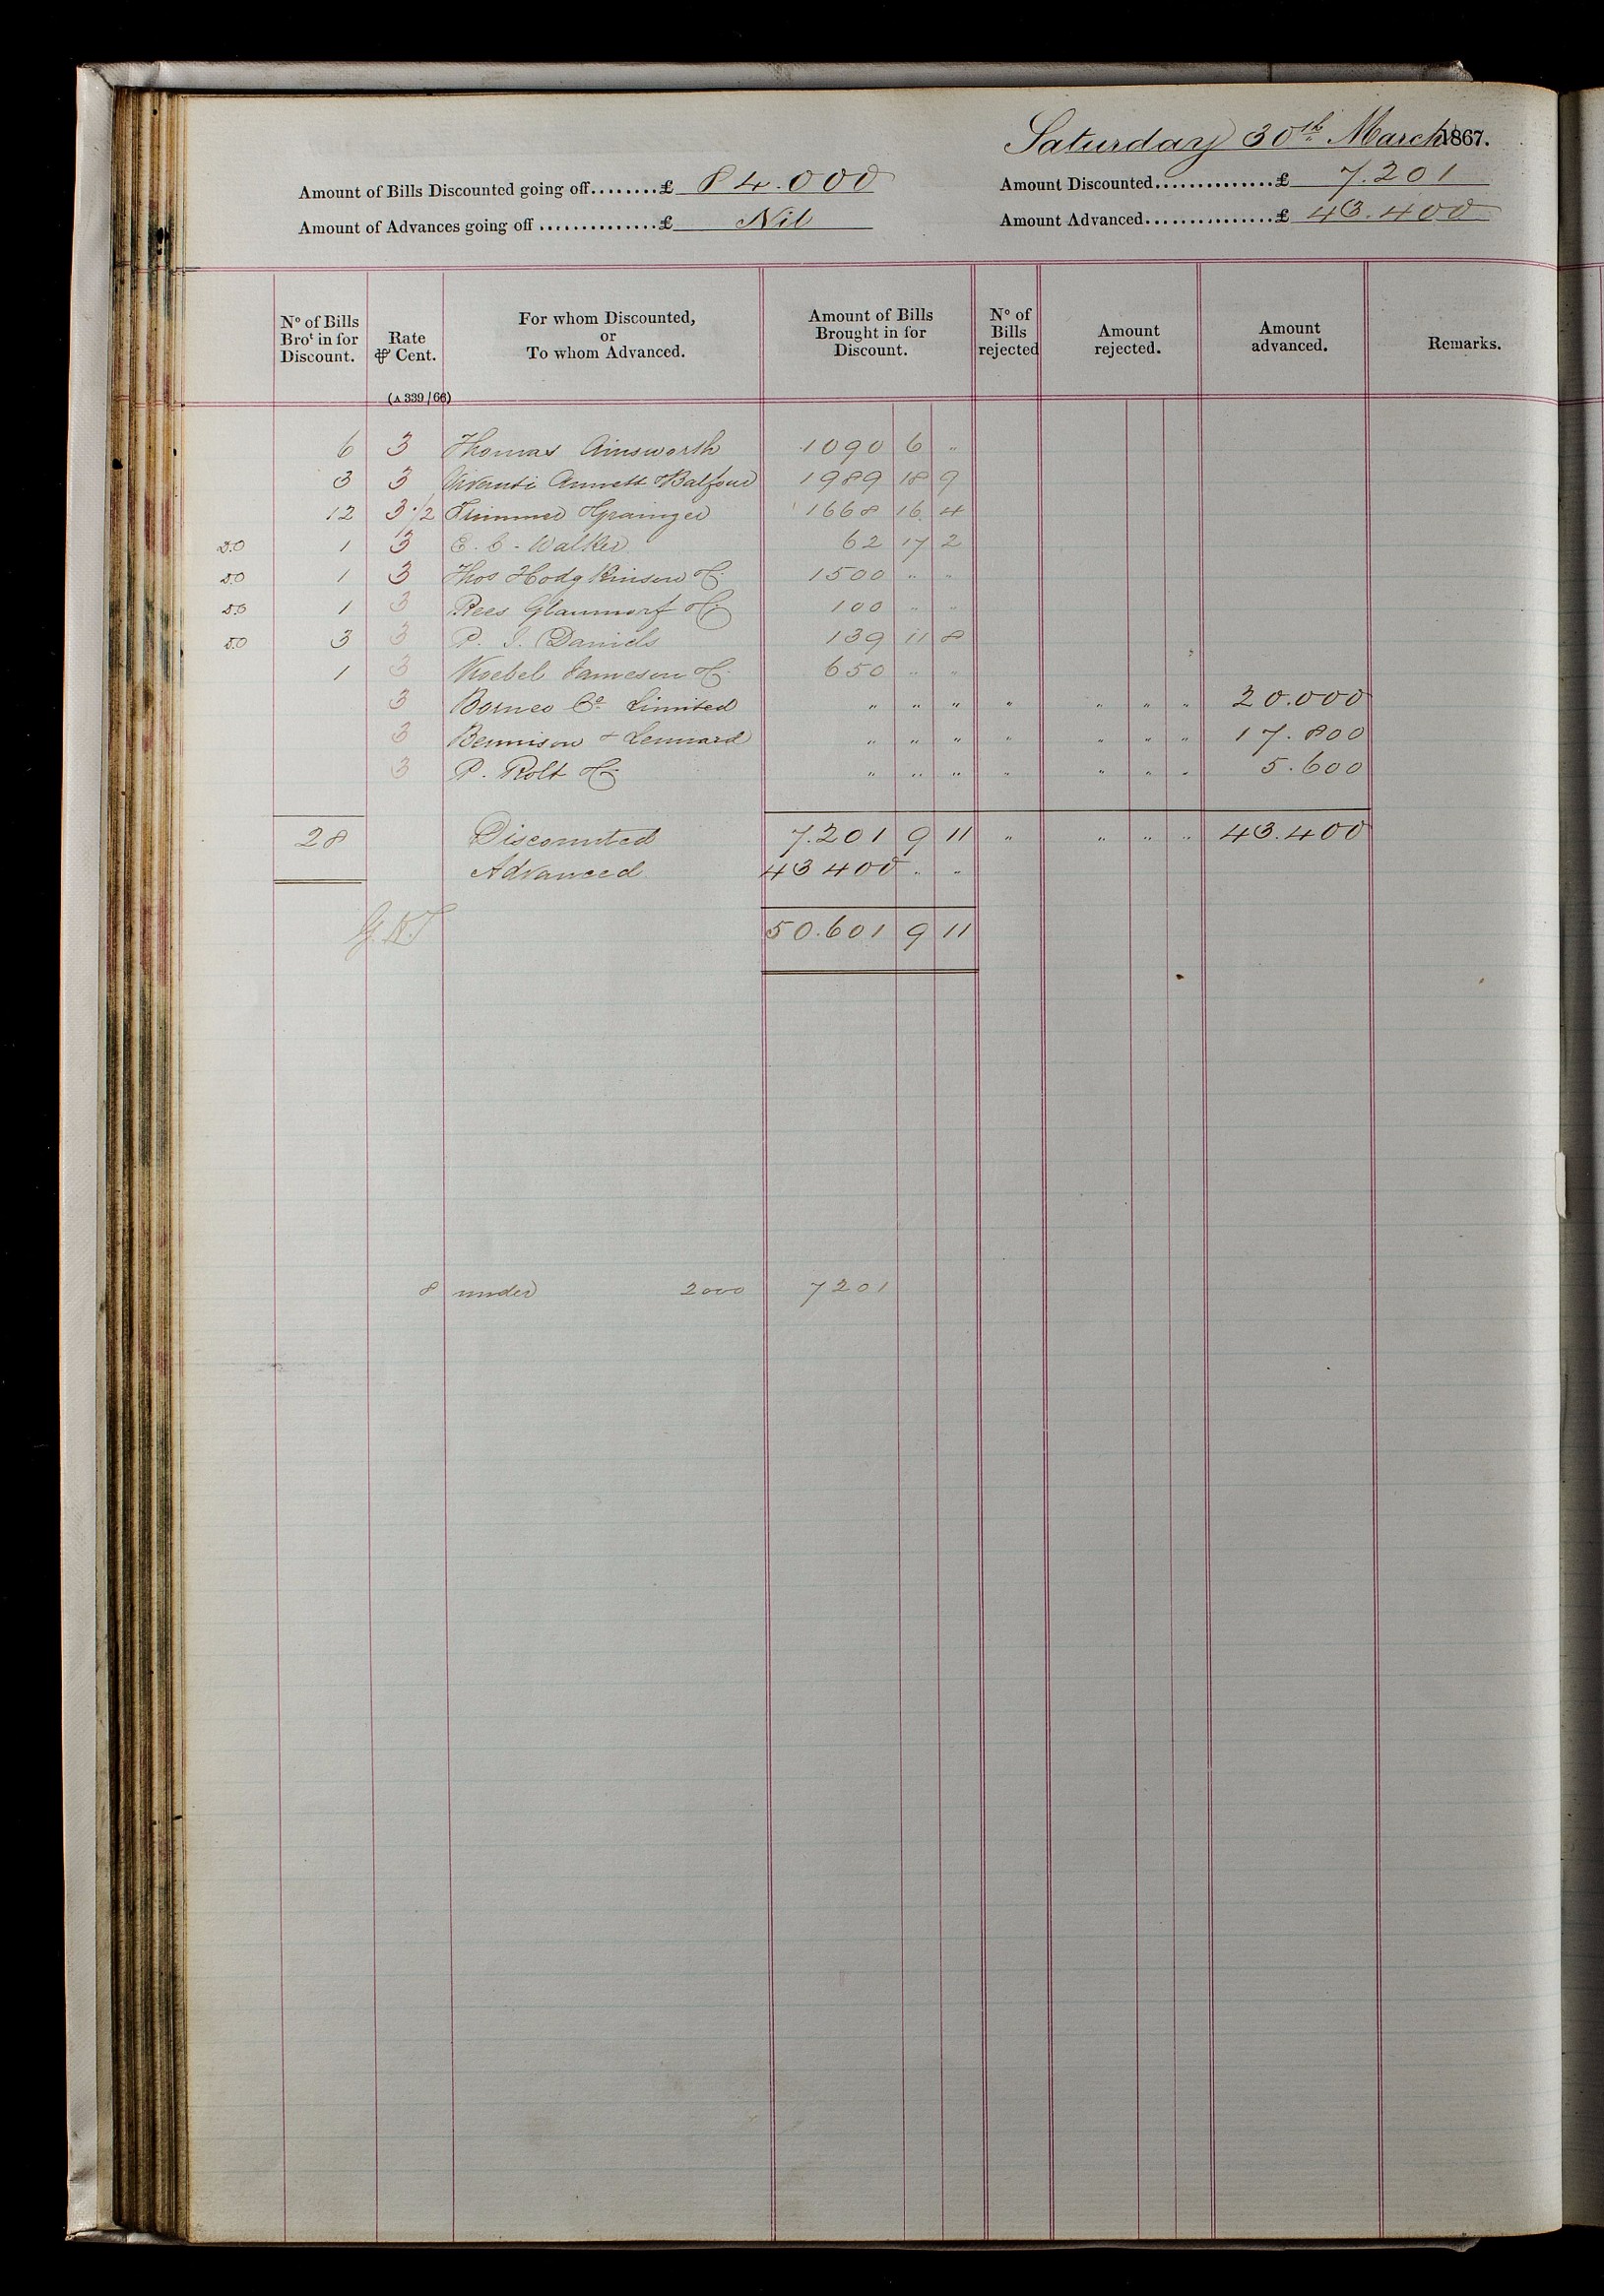 Saturday 30th March 1867.
Amount of Bills Discounted going off........£ 84.000 Amount Discounted...............£ 7.201
Amount of Advances going off ..............£ Nil Amount Advanced...............£ 43.400
No of Bills Brot in for Discount. Rate ⅌ Cent. For whom Discounted, or To whom Advanced. Amount of Bills Brought in for Discount. No of Bills rejected Amount rejected. Amount advanced. Remarks.
(A 339/66)
6 3 Thomas Ainsworth 1090 6 "
3 3 Vivanti Annett & Balfour 1989 18 9
12 3 1/2 Trimmer & Grainger 1668 16 4
1 3 E. C. Walker 62 17 2
1 3 Thos Hodgkinson & Co 1500 " "
1 3 Rees 100 " "
3 3 P. I. Daniels 139 11 8
1 3 Koebel Jameson & Co 650 " "
3 Borneo Co Limited " " " " " " " 20.000
3 Bennison & Lennard " " " " " " " 17.800
3 P. Rolt & Co " " " " " " " 5.600
28 Discounted 7.201 9 11 " " " " 43.400
Advanced 43 400 " "
50.601 9 11
8 under 2000 7201